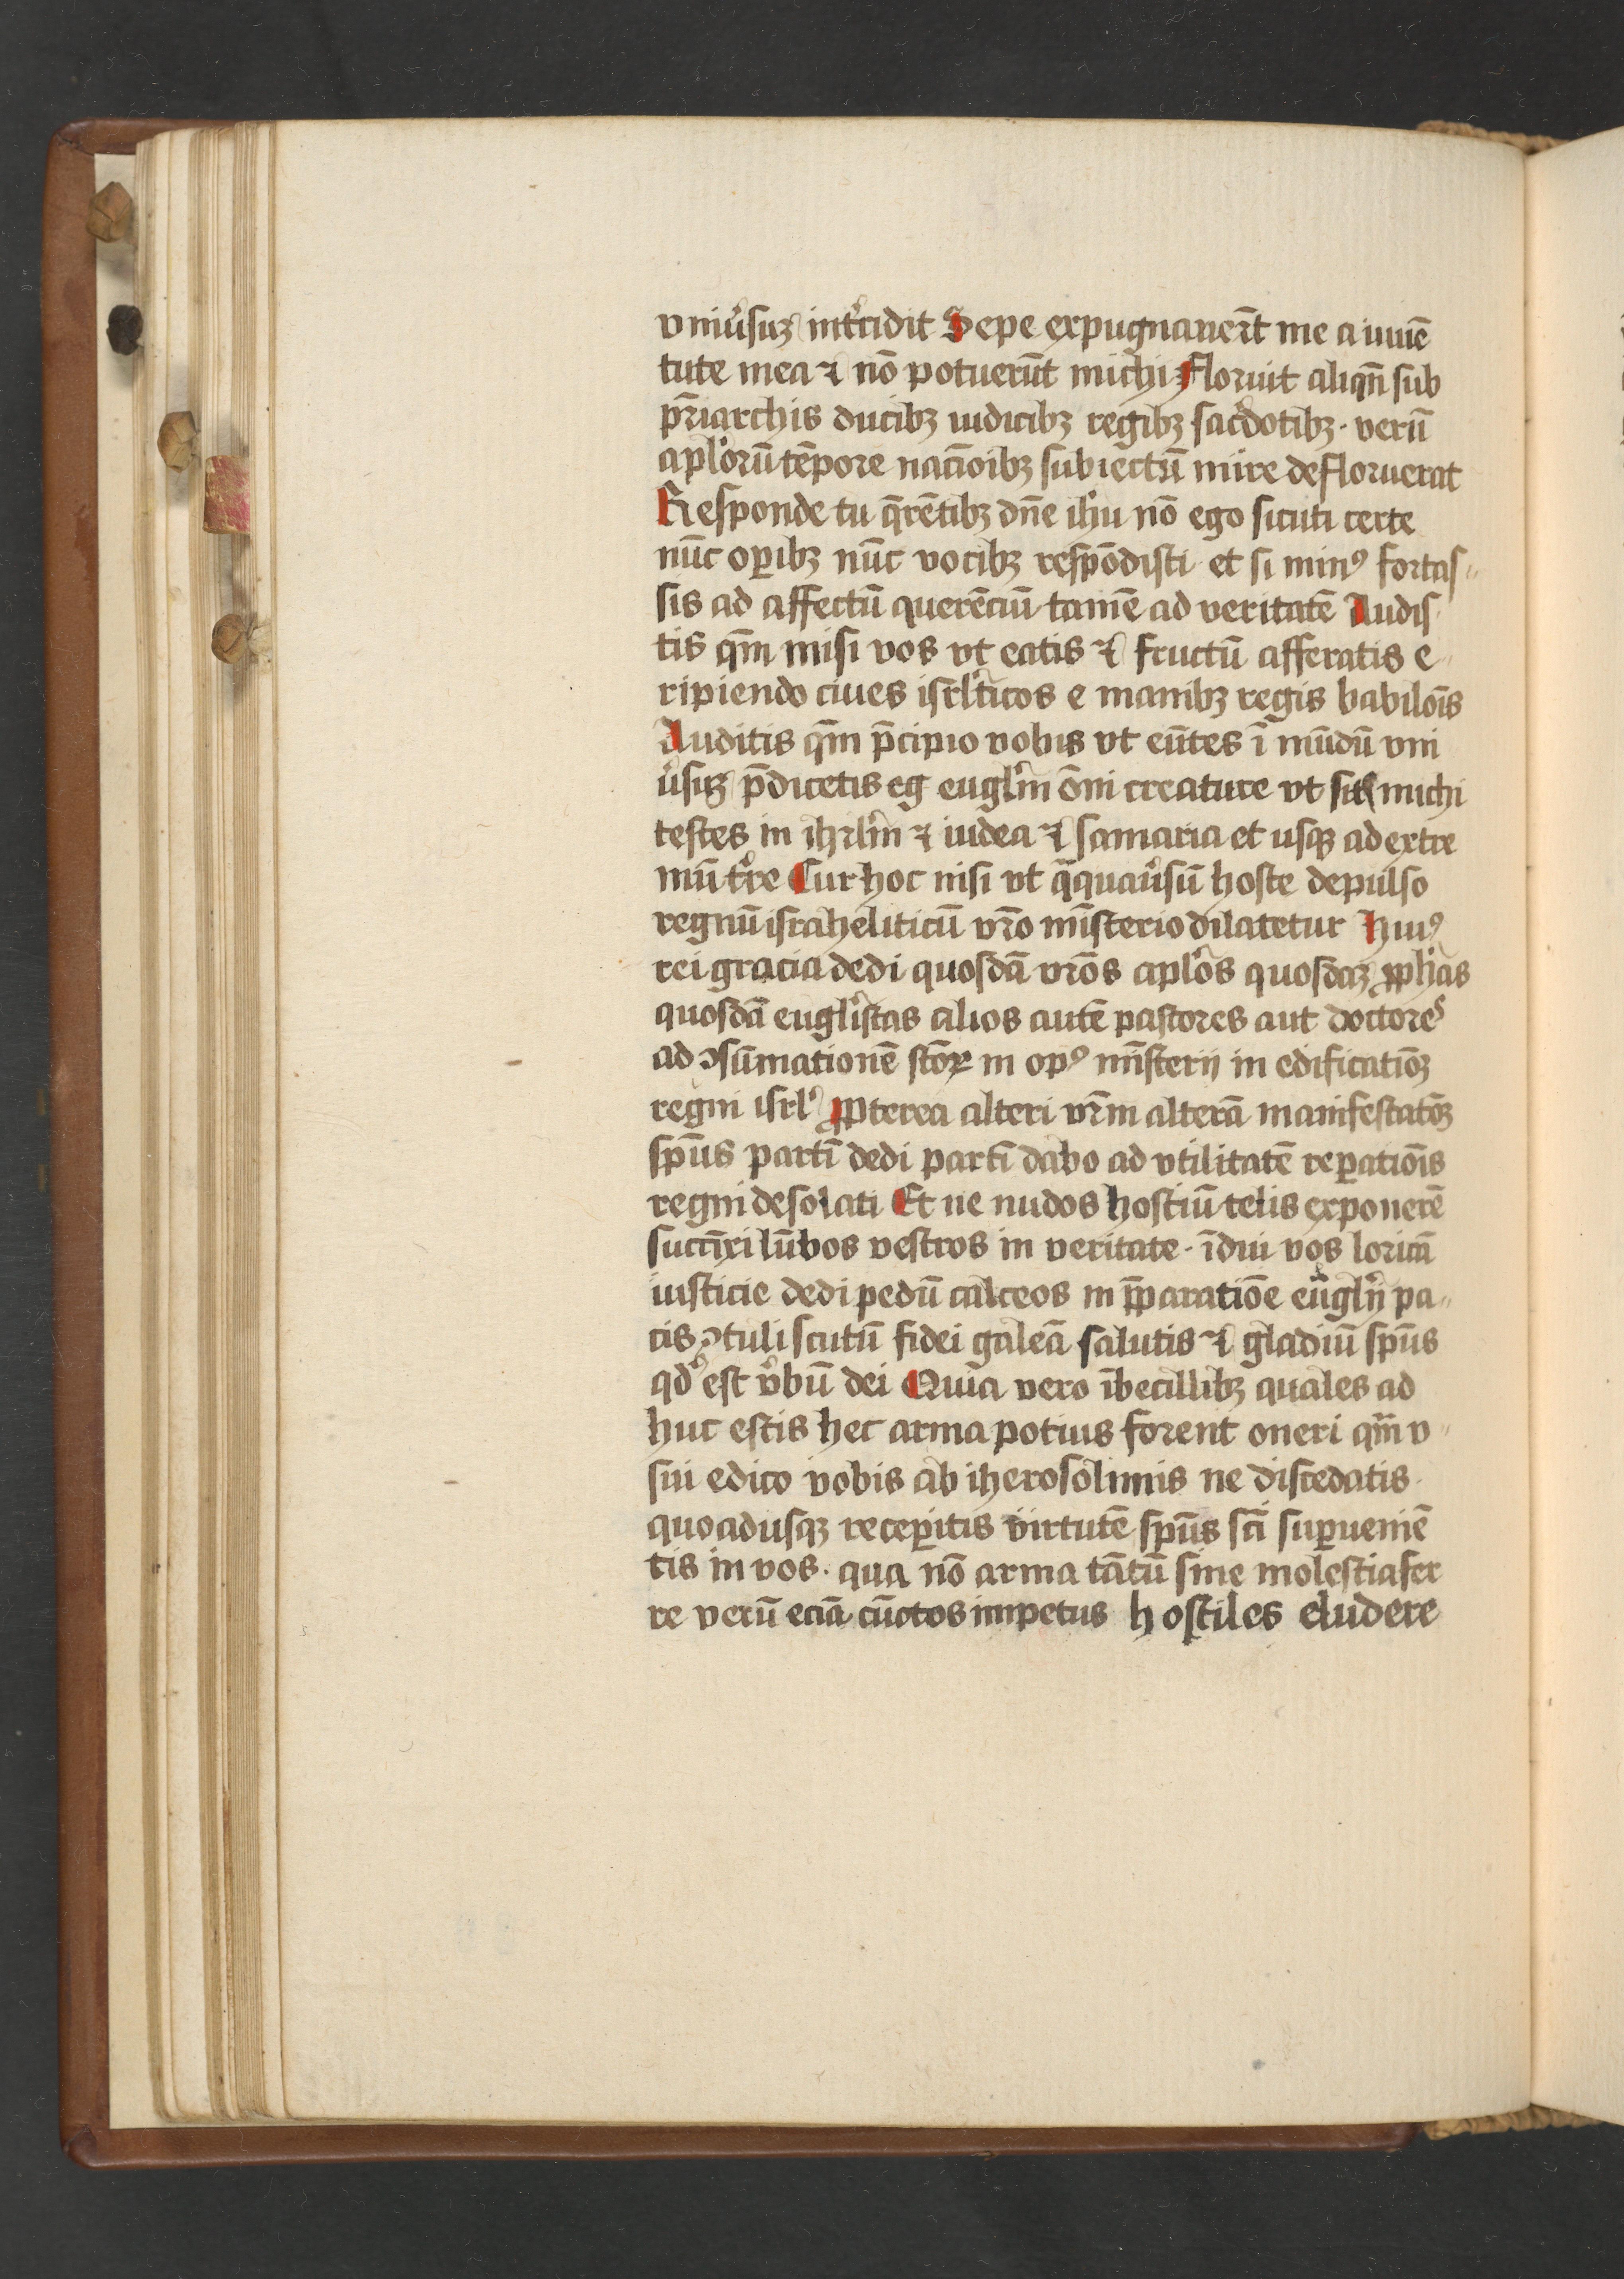 vniu͛suꝫ int͛cidit Sepe expugnauer̄t me a iuuē
tute mea ⁊ nō potuerūt michi Floruit aliqn̄ sub
pr̄iarchis ducibꝫ iudicibꝫ regibꝫ sac͛dotibꝫ · verū
apl͛orū tēpore nac̄ioibꝫ subiectū mire defloruerat
Responde tu q̄rētibꝫ dn̄e ih͛u nō ego sicuti certe
nūc oꝑibꝫ nūc vocibꝫ respōdisti · et si minꝰ fortas〃
sis ad affectū querēciū tamē ad veritatē Audis
tis qm̄ misi vos vt eatis ⁊ fructū afferatis e〃
ripiendo ciues isrl͛ticos e manibꝫ regis babilōis
Auditis qm̄ p̄cipio vobis vt eūtes ī mūdū vni
u͛suꝫ p̄dicetis eg eugl͛m ōni creature vt sitis michi
testes in ihrl͛m ⁊ iudea ⁊ samaria et usqꝫ ad extre
mū t͛re Cur hoc nisi vt q̄quau͛sū hoste depulso
regnū israheliticū vr̄o mīsterio dilatetur Huiꝰ
rei gracia dedi quosdā vr̄os apl͛os quosdaꝫ ꝓph͛as
quosdā eugl͛istas alios autē pastores aut doctores
ad ↄsūmationē sc̄oꝝ in opꝰ mīsterij in edificatiōꝫ
regni isrl͛ Ꝓpterea alteri vr̄m alterā manifestatōꝫ
sp̄us partī dedi partī dabo ad vtilitatē reꝑatiōis
regni desolati Et ne nudos hostiū telis exponerē
succīxi lūbos vestros in veritate · īdui vos loricā
iusticie dedi pedū calceos in p̄paratiōe eūgl͛ij pa〃
cis ↄtuli scutū fidei galeā salutis ⁊ gladiū sp̄us
qd͛ est v͛bū dei Quia vero ībecillibꝫ quales ad
huc estis hec arma potius forent oneri qm̄ v〃
sui edico vobis ab iherosolimis ne discedatis
quoadusqꝫ receꝑitis virtutē sp̄us sc̄i suꝑueniē
tis in vos · qua nō arma tātū sine molestia fer
re verū eciā cūctos impetus hostiles eludere